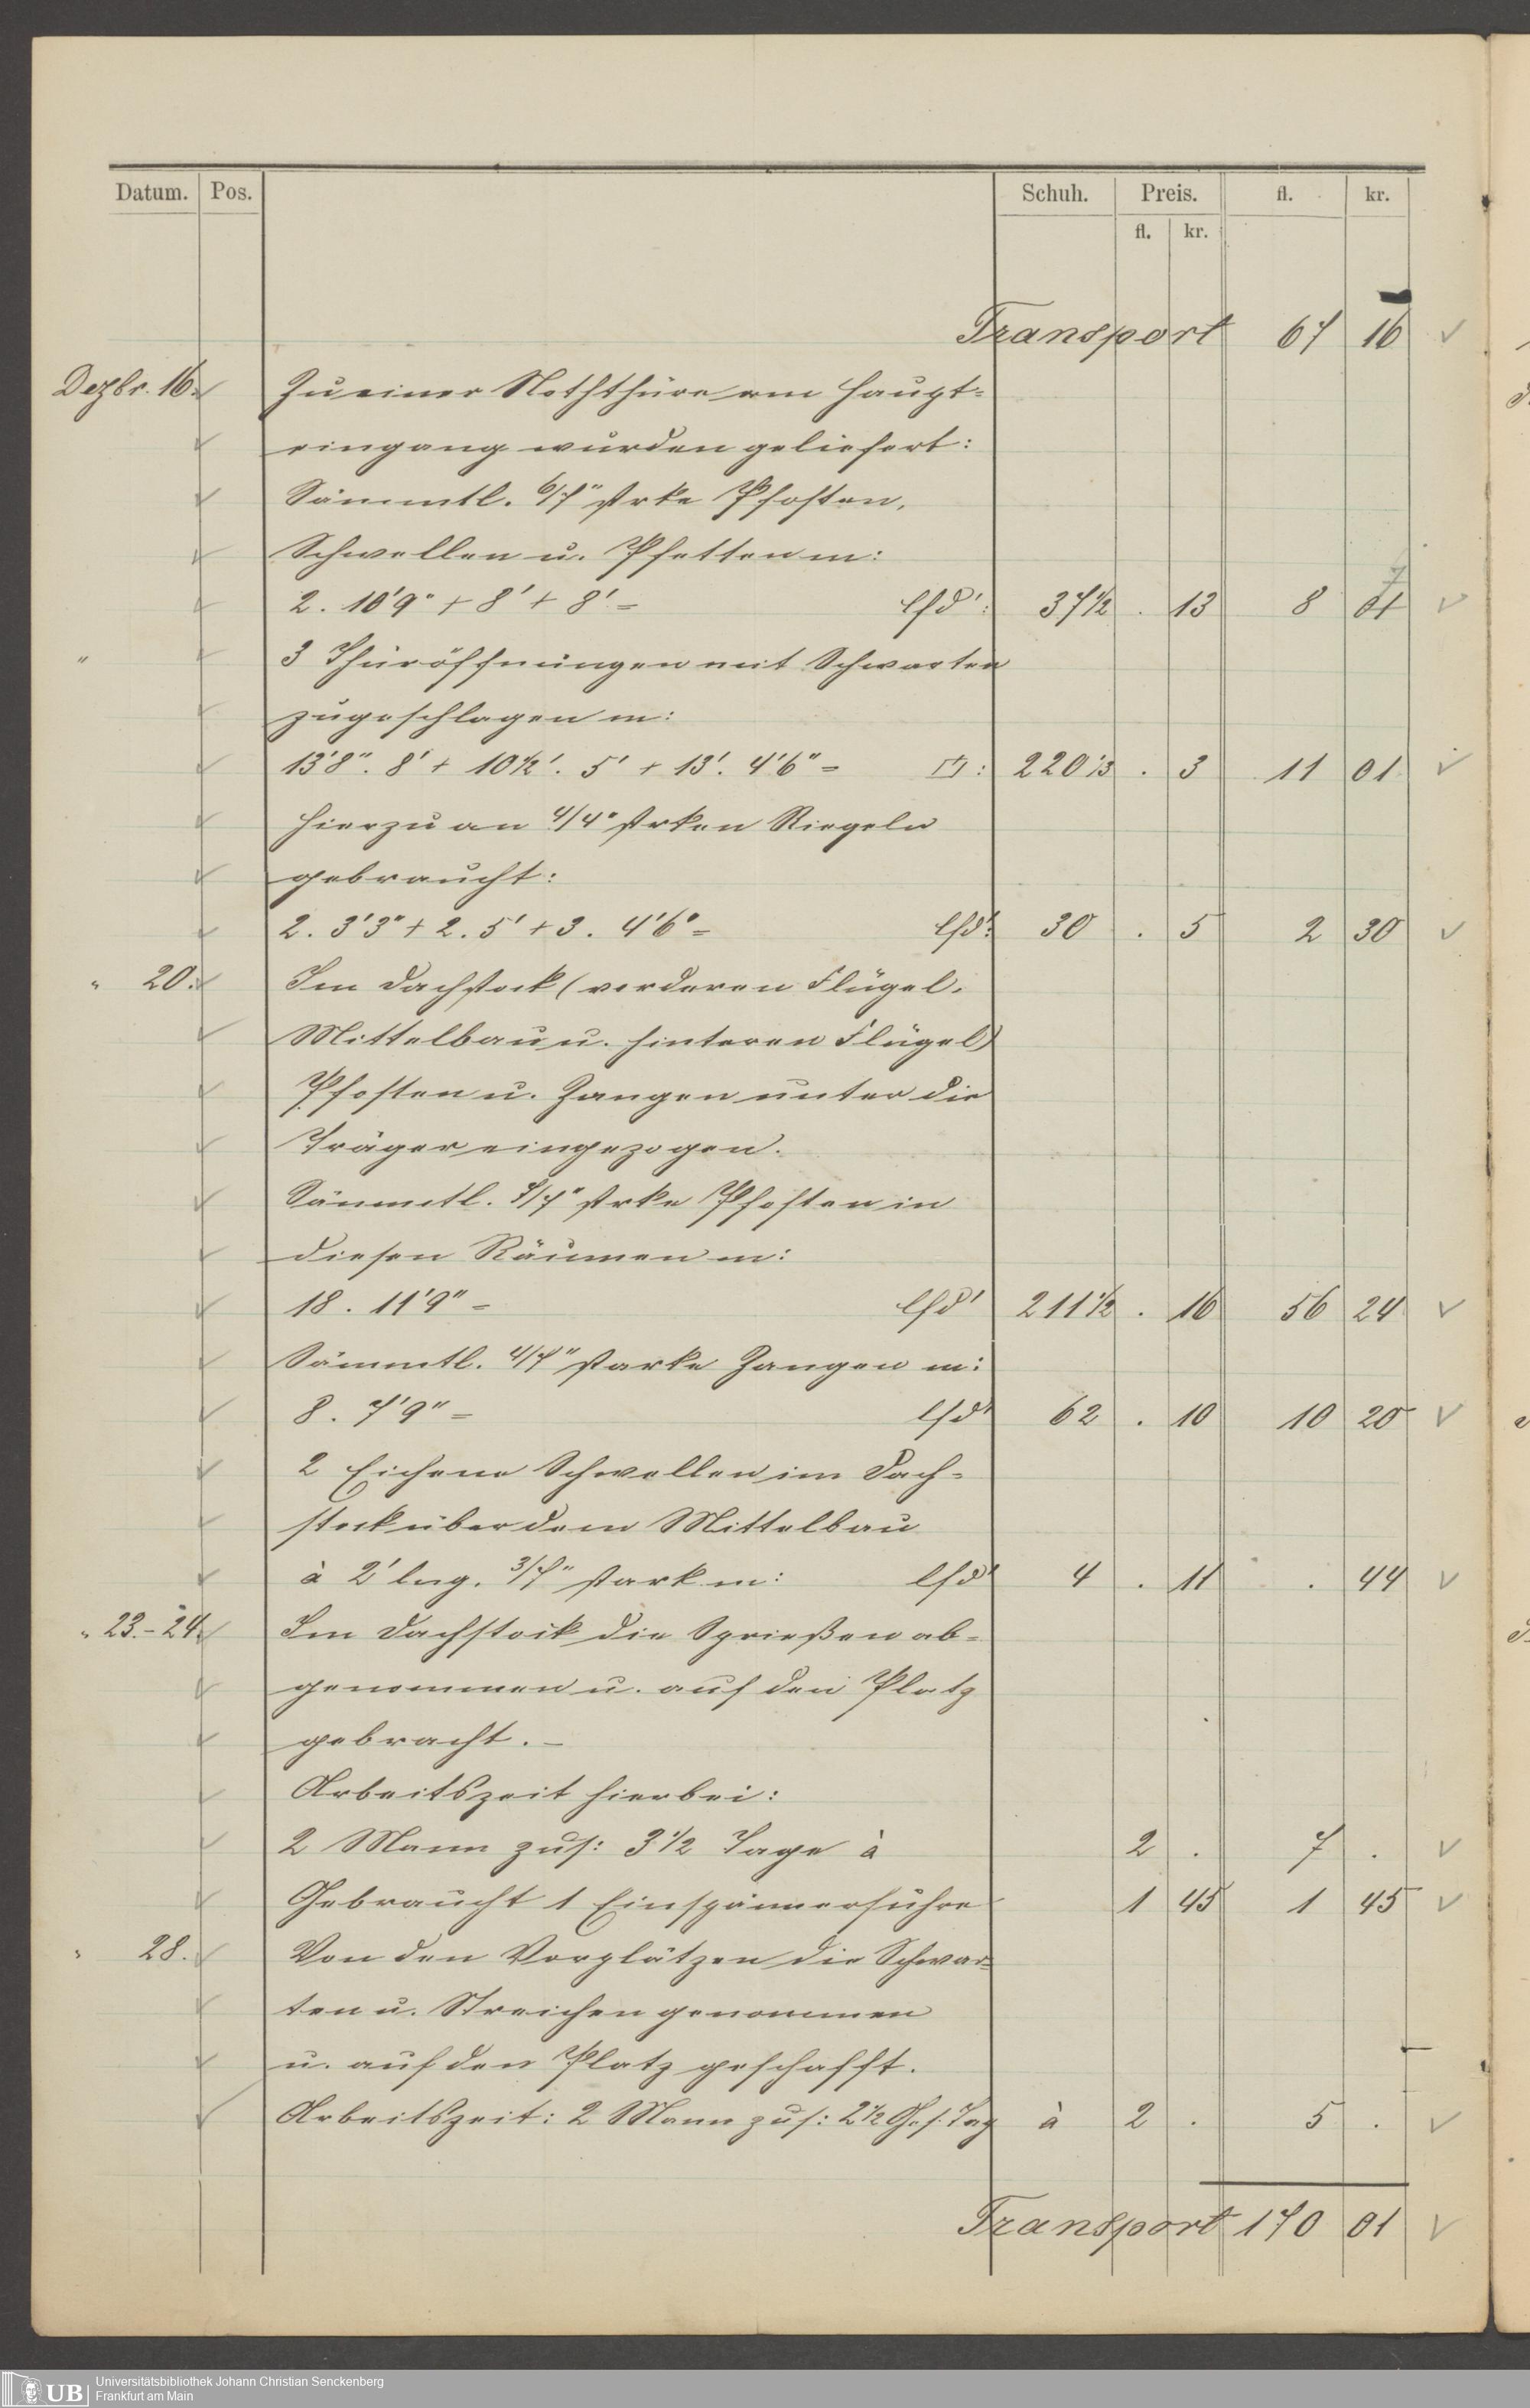 Datum. Pos. Schuh. Preis. fl. kr.
fl. kr.
Transport 67 16
Dezbr. 16. Zu einer Noththüre am Haupt-
eingang wurden geliefert:
Sämmtl. 6/7" strke Pfosten,
Schwellen u. Pfetten m:
2. 10'9" + 8' + 8' = lfd': 37 1/2 . 13 8 01
7
" 3 Thüröffnungen mit Schwarten
zugeschlagen m:
13'8". 8' + 10 1/2'. 5' + 13'. 4'6" = □': 220 1/3 . 3 11 01
Hierzu an 4/4" strken Riegeln
gebraucht:
2. 3'3" + 2. 5' + 3. 4'6" = lfd': 30 . 5 2 30
" 20. Im Dachstock (vorderen Flügel,
Mittelbau u. hinteren Flügel)
Pfosten u. Zangen unter die
Träger eingezogen.
Sämmtl. 7/7" strke Pfosten in
diesen Räumen m:
18. 11'9" = lfd' 211 1/2 . 16 56 24
Sämmtl. 4/7" starke Zangen m:
8. 7'9" = lfd' 62 . 10 10 20
2 Eichene Schwellen im Dach-
stock über dem Mittelbau
à 2' lng. 3/7" stark m: lfd' 4 . 11 . 44
" 23.-24. Im Dachstock die Sprießen ab-
genommen u. auf den Platz
gebracht. –
Arbeitszeit hierbei:
2 Mann zus: 3 1/2 Tage à 2 . 7 .
Gebraucht 1 Einspännerfuhre 1 45 1 45
" 28. Von den Vorplätzen die Schwar-
ten u. Streichen genommen
u. auf den Platz geschafft.
Arbeitszeit: 2 Mann zus: 2 1/2 Ges. Tag à 2 . 5 .
Transport 170 01
UB Universitätsbibliothek Johann Christian Senckenberg
Frankfurt am Main